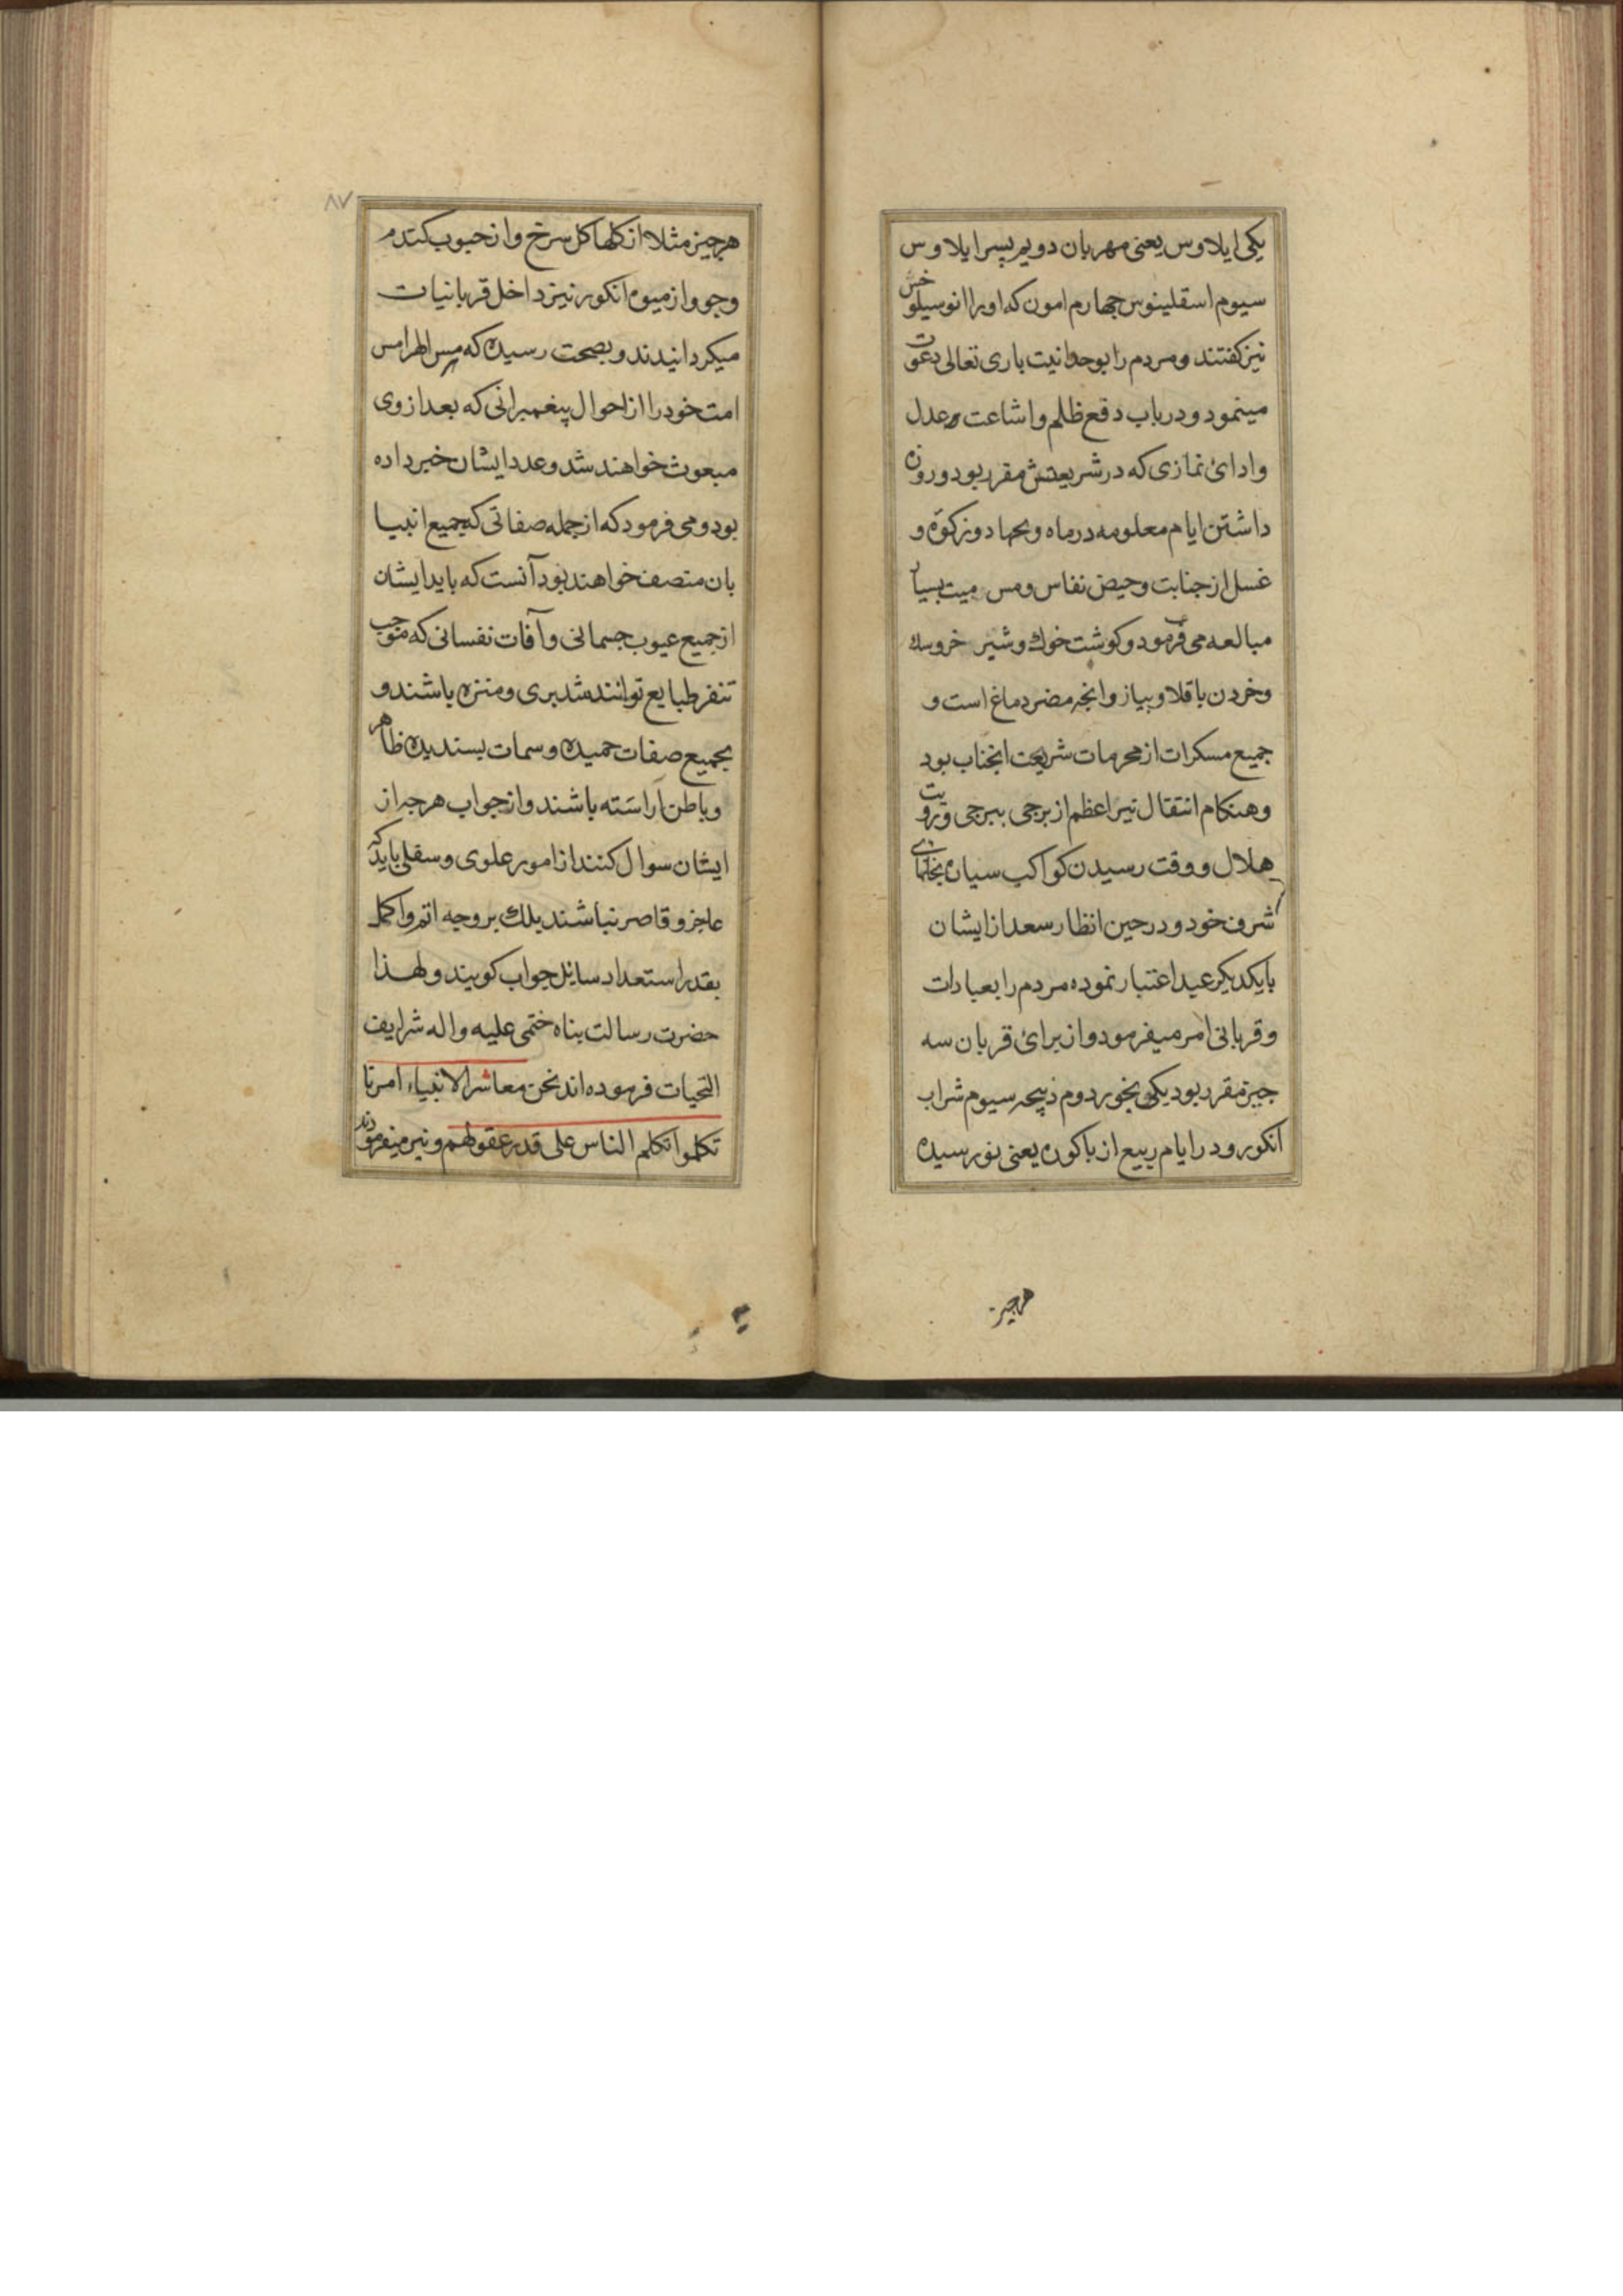 یکی ایلاوس یعنی مهربان دویم پسر ایلاوس
سیوم اسقلینوس چهارم امون که او را انوسیلوخس
نیز کفتند و مردم را بوحدانیت باری تعالی دعوت
مینمود و در باب دفع ظلم و اشاعت عدل
و ادائ نمازی که در شریعتش مقرر بود و روزه
داشتن ایام معلومه در ماه و بجهاد و زکوة و
غسل از جنابت و حیض نفاس و مس میت بسیار
مبالعه می فرمود و کوشت خوك و شیر خر و سك
و خردن باقلا و پیاز و انچه مضر دماغ است و
جمیع مسکرات از محرمات شریعت انجناب بود
و هنکام انتقال نیر اعظم از برجی ببرجی و رویت
هلال و وقت رسیدن کواکب سیاره بخانهای
شرف خود و در حین انظار سعد از ایشان
بایکدیکر عید اعتبار نموده مردم را بعبادات
و قربانی امر میفرمود و از برائ قربان سه
چیز مقرر بود یکی بخور دوم ذبیحه سیوم شراب
انکور و در ایام ربیع از باکوره یعنی نو رسیده
هرچیز
۸۷
هرچیز مثلا از کلها کل سرخ و از حبوب کندم
و جو و از میوه انکور نیز داخل قربانیات
میکردانیدند و بصحت رسیده که هرمس الهرامس
امت خود را از احوال پیغمبرانی که بعد از وی
مبعوث خواهند شد و عدد ایشان خبر داده
بود و می فرمود که از جمله صفاتی که جمیع انبیا
بان متصف خواهند بود آنست که باید ایشان
از جمیع عیوب جسمانی و آفات نفسانی که موجب
تنفر طبایع توانند شد بری و منزه باشند و
بجمیع صفات حمیده و سمات پسندیده ظاهر
و باطن اراسته باشند و از جواب هرچه از
ایشان سوال کنند از امور علوی و سفلی باید که
عاجز و قاصر نباشند بلك بر وجه اتم و اکمل
بقدر استعداد سایل جواب کویند و لهذا
حضرت رسالت پناه ختمی علیه و اله شرایف
التحیات فرموده اند نحن معاشر الانبیاء امرنا
تکلموا تکلم الناس علی قدر عقولهم و نیز میفرمودند